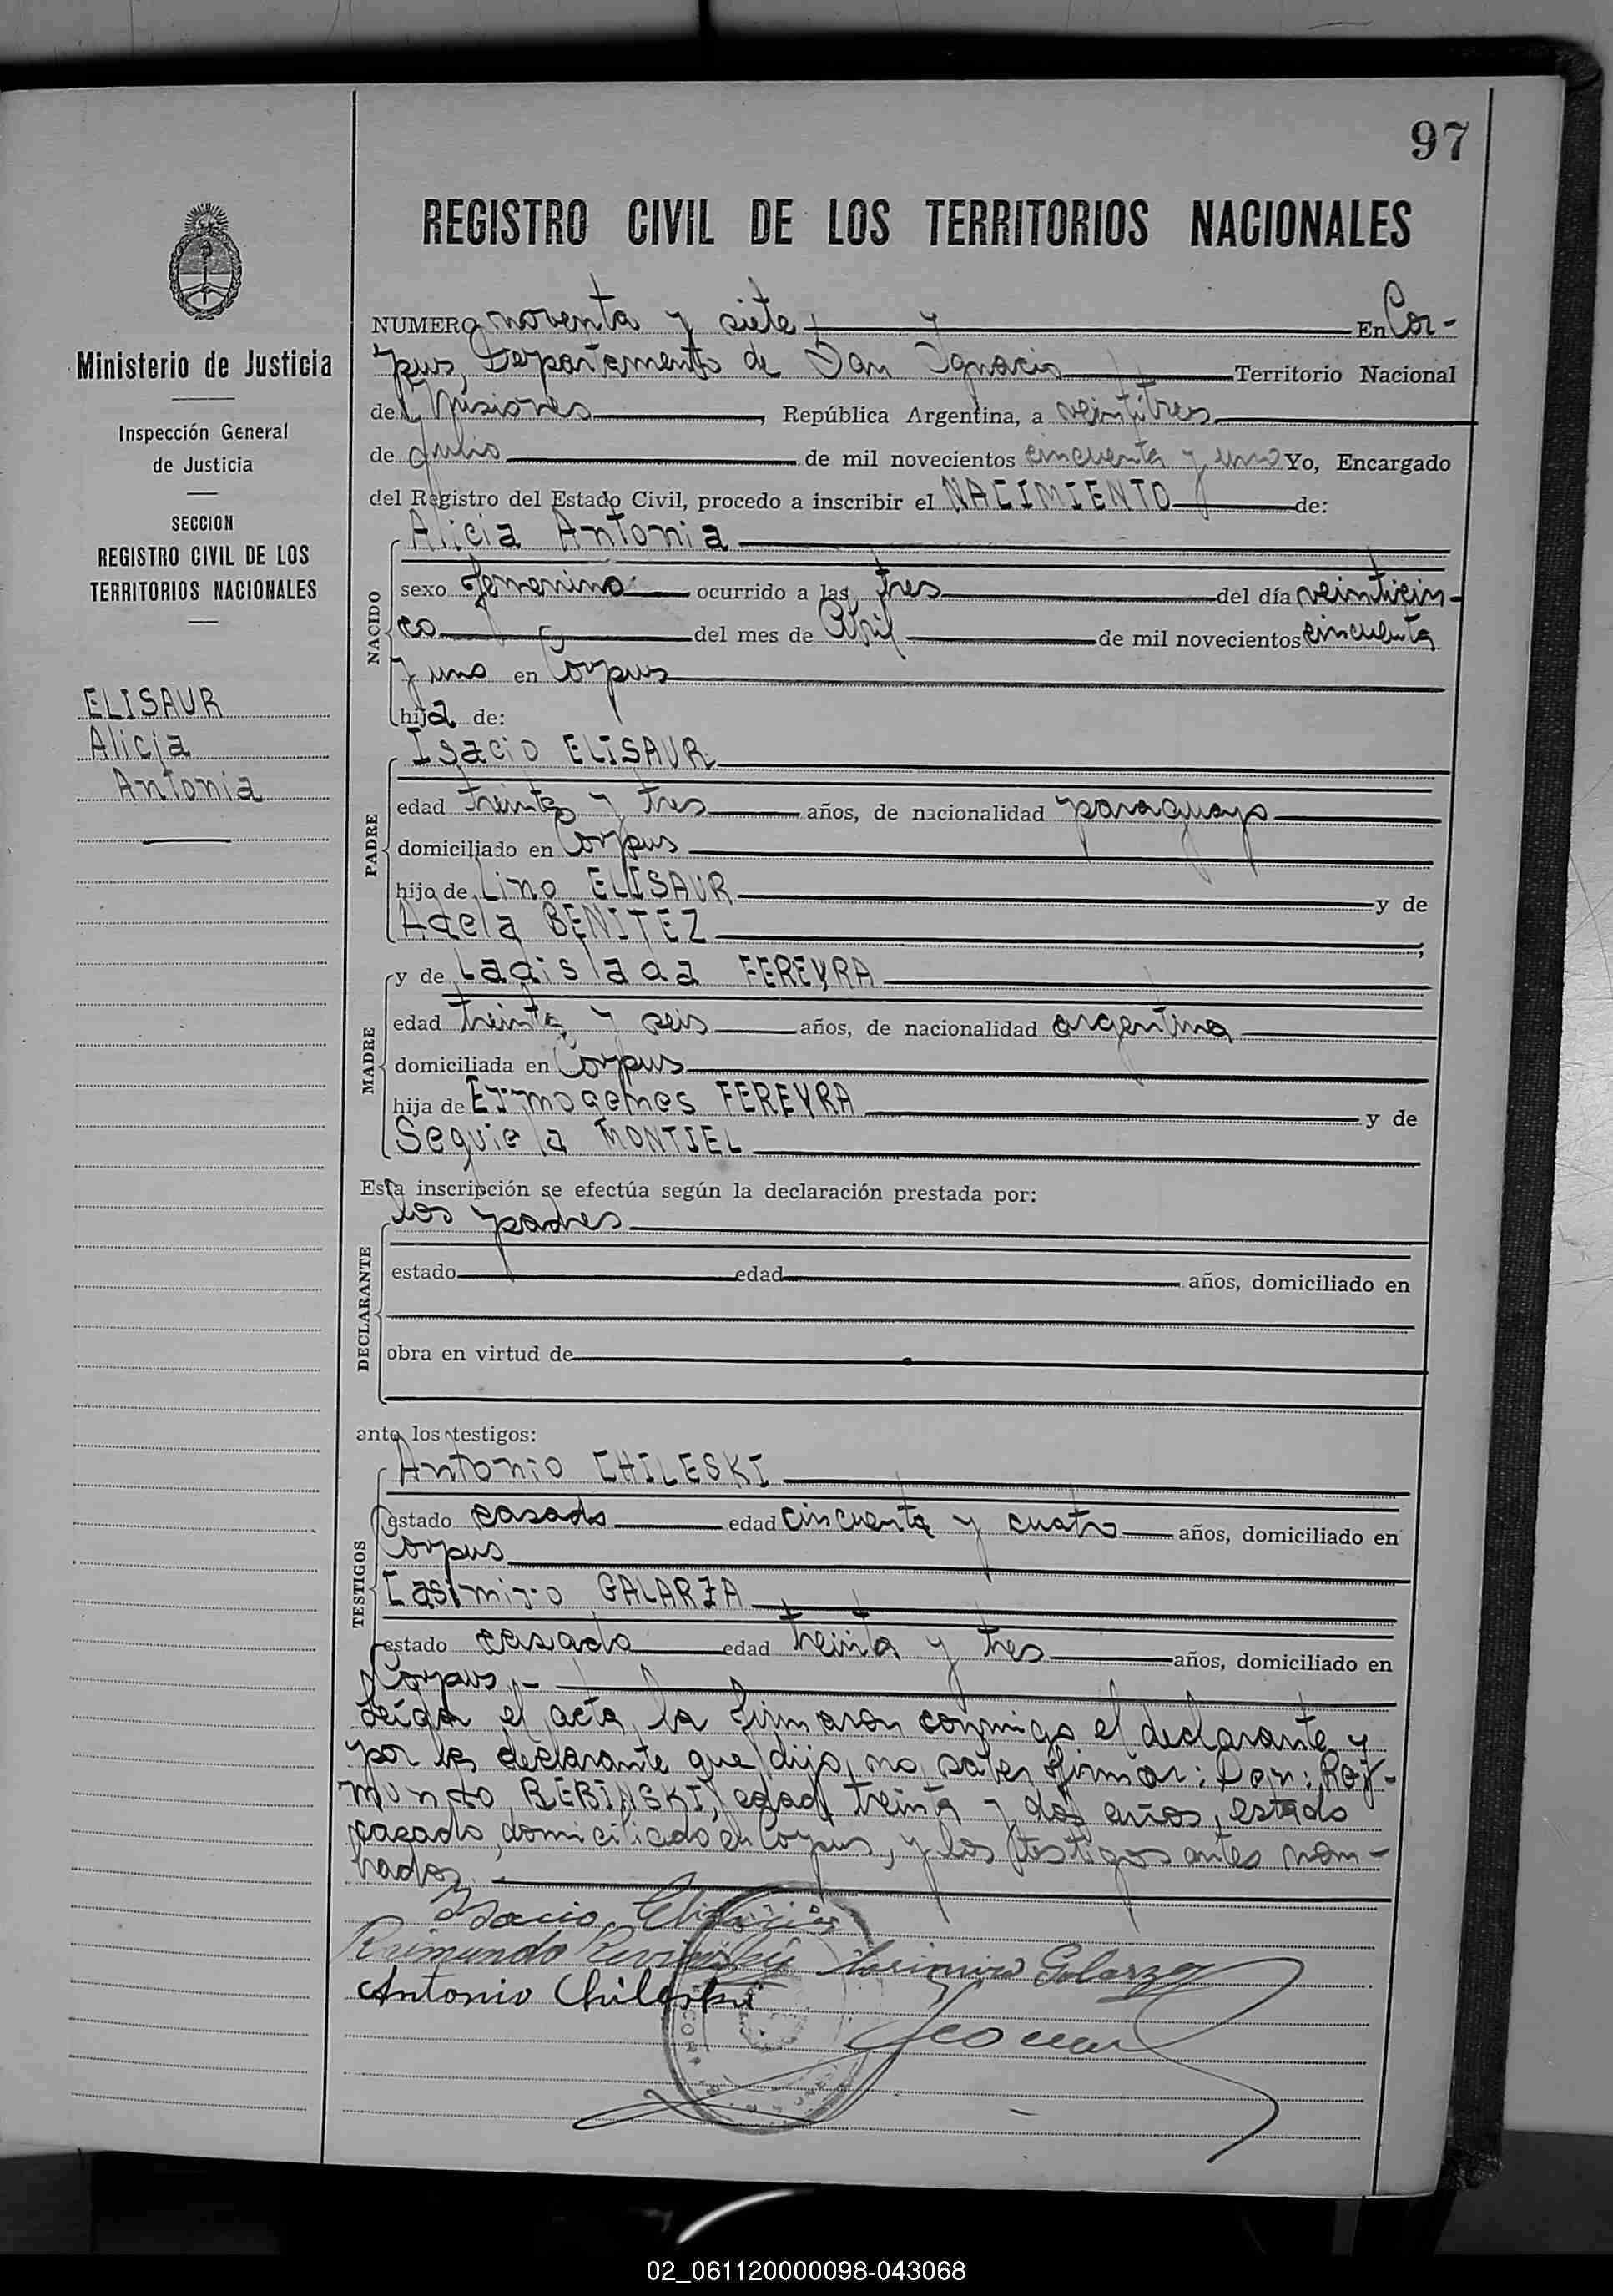 97
REGISTRO CIVIL DE LOS TERRITORIOS NACIONALES
Ministerio de Justicia
Inspección General
de Justicia
SECCION
REGISTRO CIVIL DE LOS
TERRITORIOS NACIONALES
ELISAUR
Alicia
Antonia
NUMERO noventa y siete En Cor-
pus, Departamento de San Ignacio Territorio Nacional
de Misiones, República Argentina, a veintitres
de Julio de mil novecientos cincuenta y uno Yo, Encargado
del Registro del Estado Civil, procedo a inscribir el NACIMIENTO de:
NACIDO
Alicia Antonia
sexo femenino ocurrido a las tres del día veinticin-
co del mes de Abril de mil novecientos cincuenta
y uno en Corpus
hija de:
PADRE
Isacio ELISAUR
edad treinta y tres años, de nacionalidad paraguayo
domiciliado en Corpus
hijo de Lino ELISAUR y de
Adela BENITEZ;
MADRE
y de Ladislada FEREYRA
edad treinta y seis años, de nacionalidad argentina
domiciliada en Corpus
hija de Ermogenes FEREYRA y de
Seguiela MONTIEL
Esta inscripción se efectúa según la declaración prestada por:
DECLARANTE
los padres
estado edad años, domiciliado en
obra en virtud de
ante los testigos:
TESTIGOS
Antonio CHILESKI
estado casado edad cincuenta y cuatro años, domiciliado en
Corpus
Casimiro GALARZA
estado casado edad treinta y tres años, domiciliado en
Corpus.-
Leída el acta, la firmaron conmigo el declarante y
por la declarante que dijo no saber firmar: Don: Ray-
mundo REBINSKI, edad treinta y dos años, estado
casado, domiciliado en Corpus, y los testigos antes nom-
brados.
Isacio
Raimundo Casimiro Galarza
Antonio Chileski
02_061120000098-043068